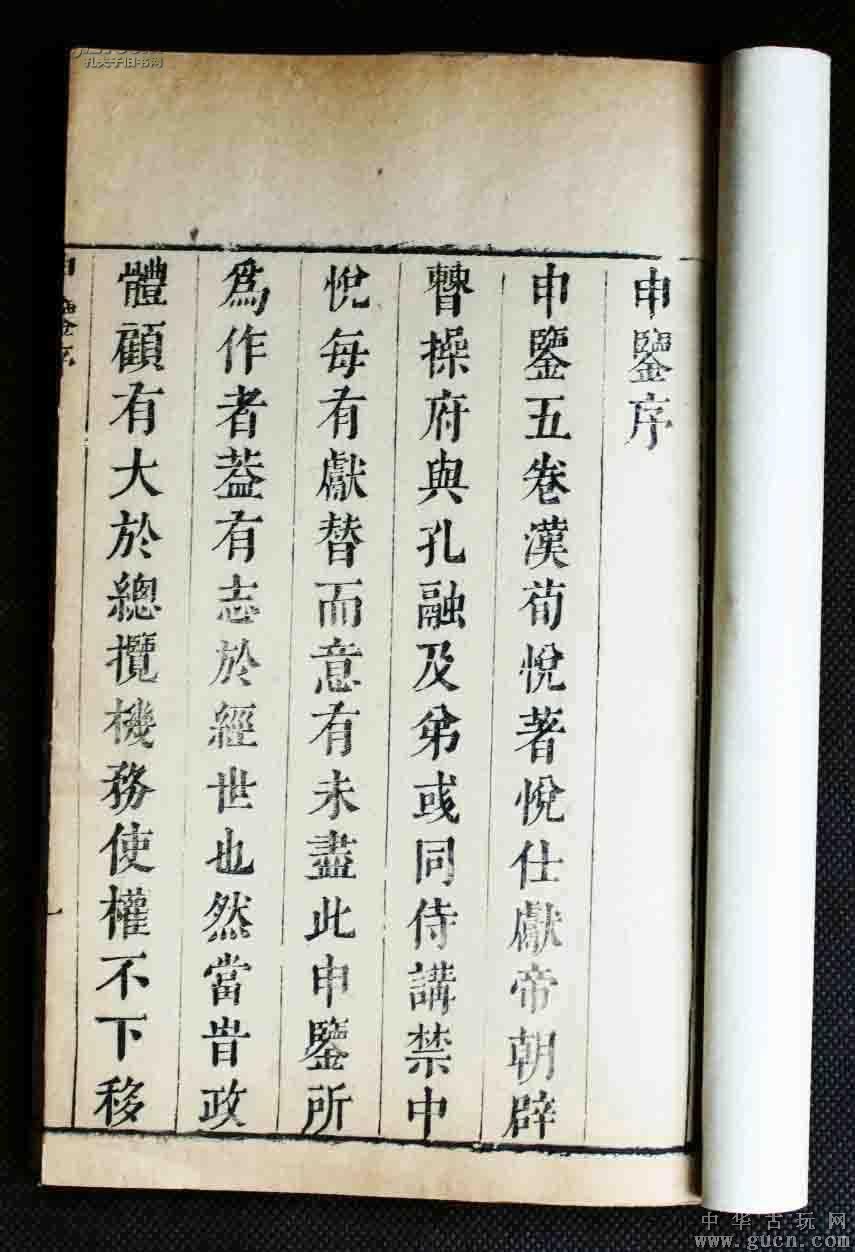 申鑒序
申鑒五卷漢荀悅著悅仕獻帝朝辟
曹操府與孔融及弟彧同侍講禁中
悅每有獻替而意有未盡此申鑒所
爲作者葢有志於經世也然當旹政
體顧有大於總攬機務使權不下移
申鑒序
一
孔夫子旧书网
中华古玩网
www.gucn.com